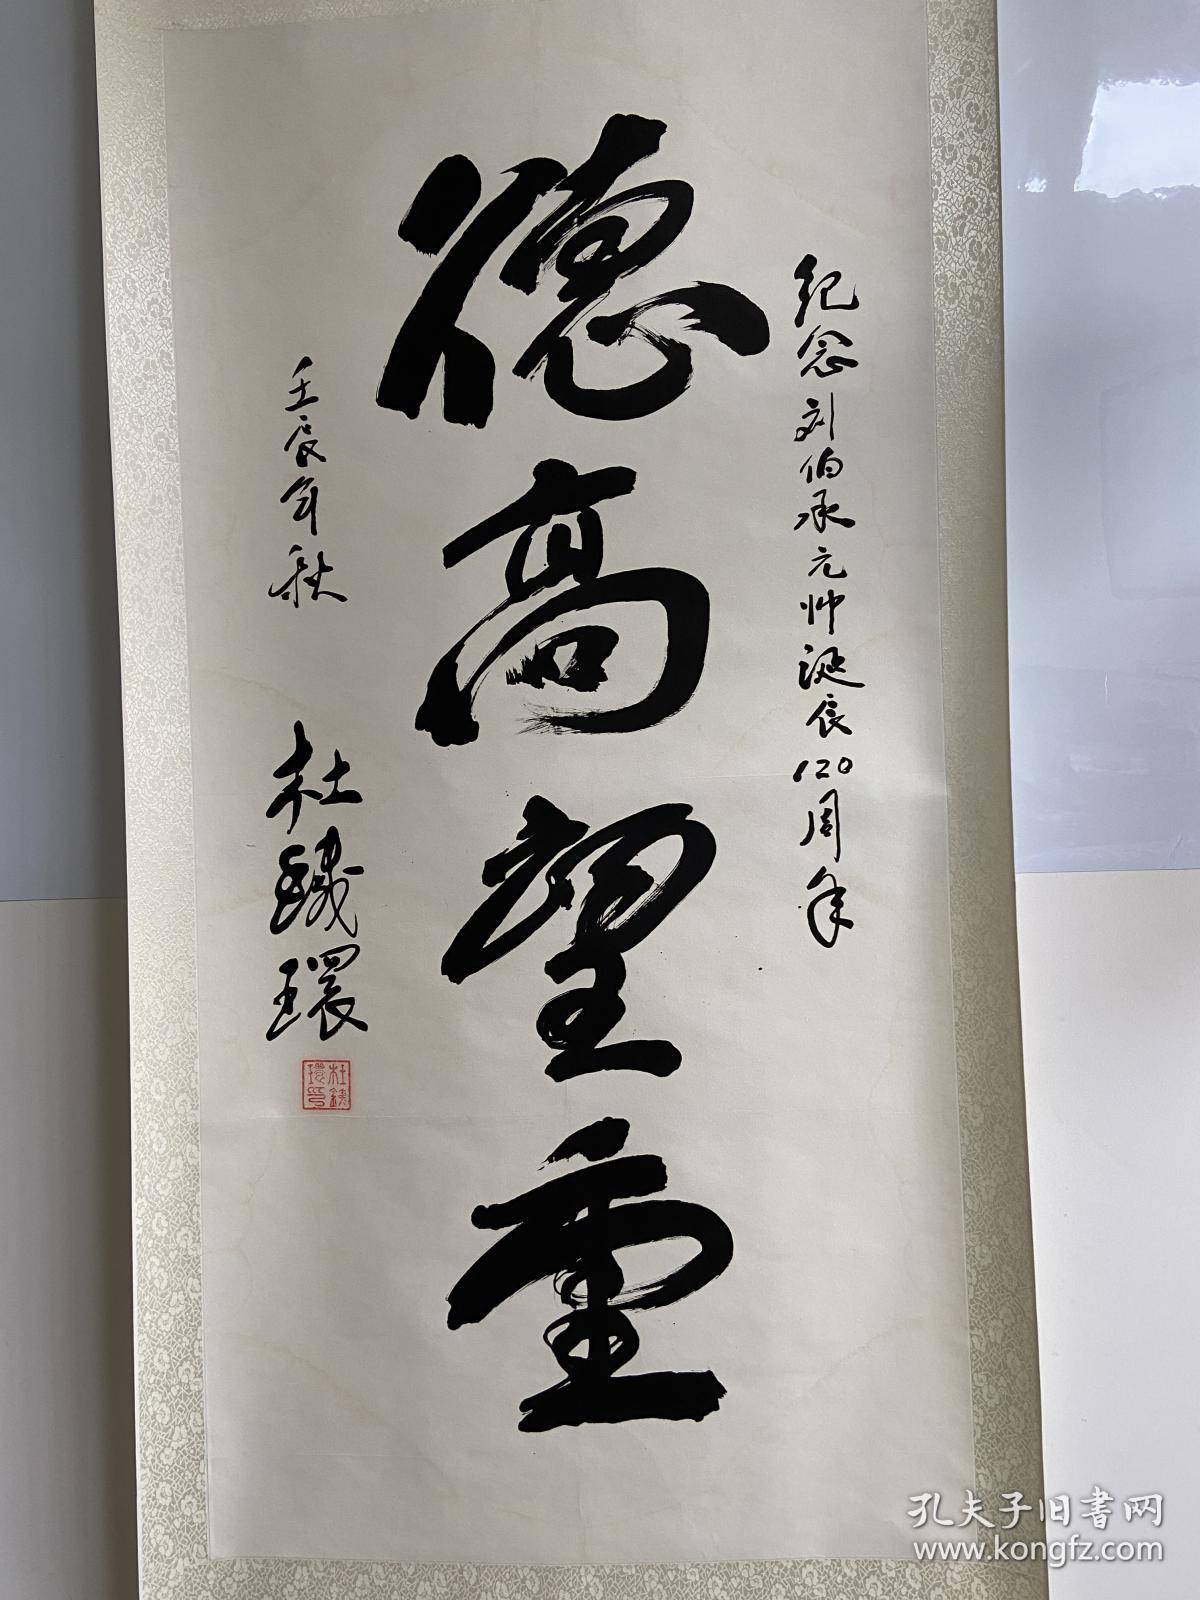 纪念刘伯承元帅诞辰120周年
德高望重
壬辰年秋
杜鐵環
杜鐵環印
孔夫子旧书网
www.kongfz.com